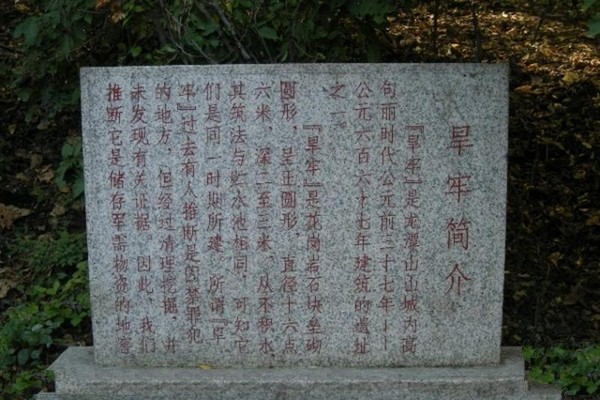 旱牢简介
『旱牢』是龙潭山山城内高
句丽时代公元前三十七年——
公元六百六十七年建筑的遗址
之一。
『旱牢』是花岗岩石块垒砌
圆形，呈正圆形，直径十六点
六米，深二至三米，从不积水，
其筑法与贮水池相同，可知它
们是同一时期所建。所谓『旱
牢』过去有人推断是囚禁罪犯
的地方，但经过清理挖掘，并
未发现有关证据。因此，我们
推断它是储存军需物资的地窖